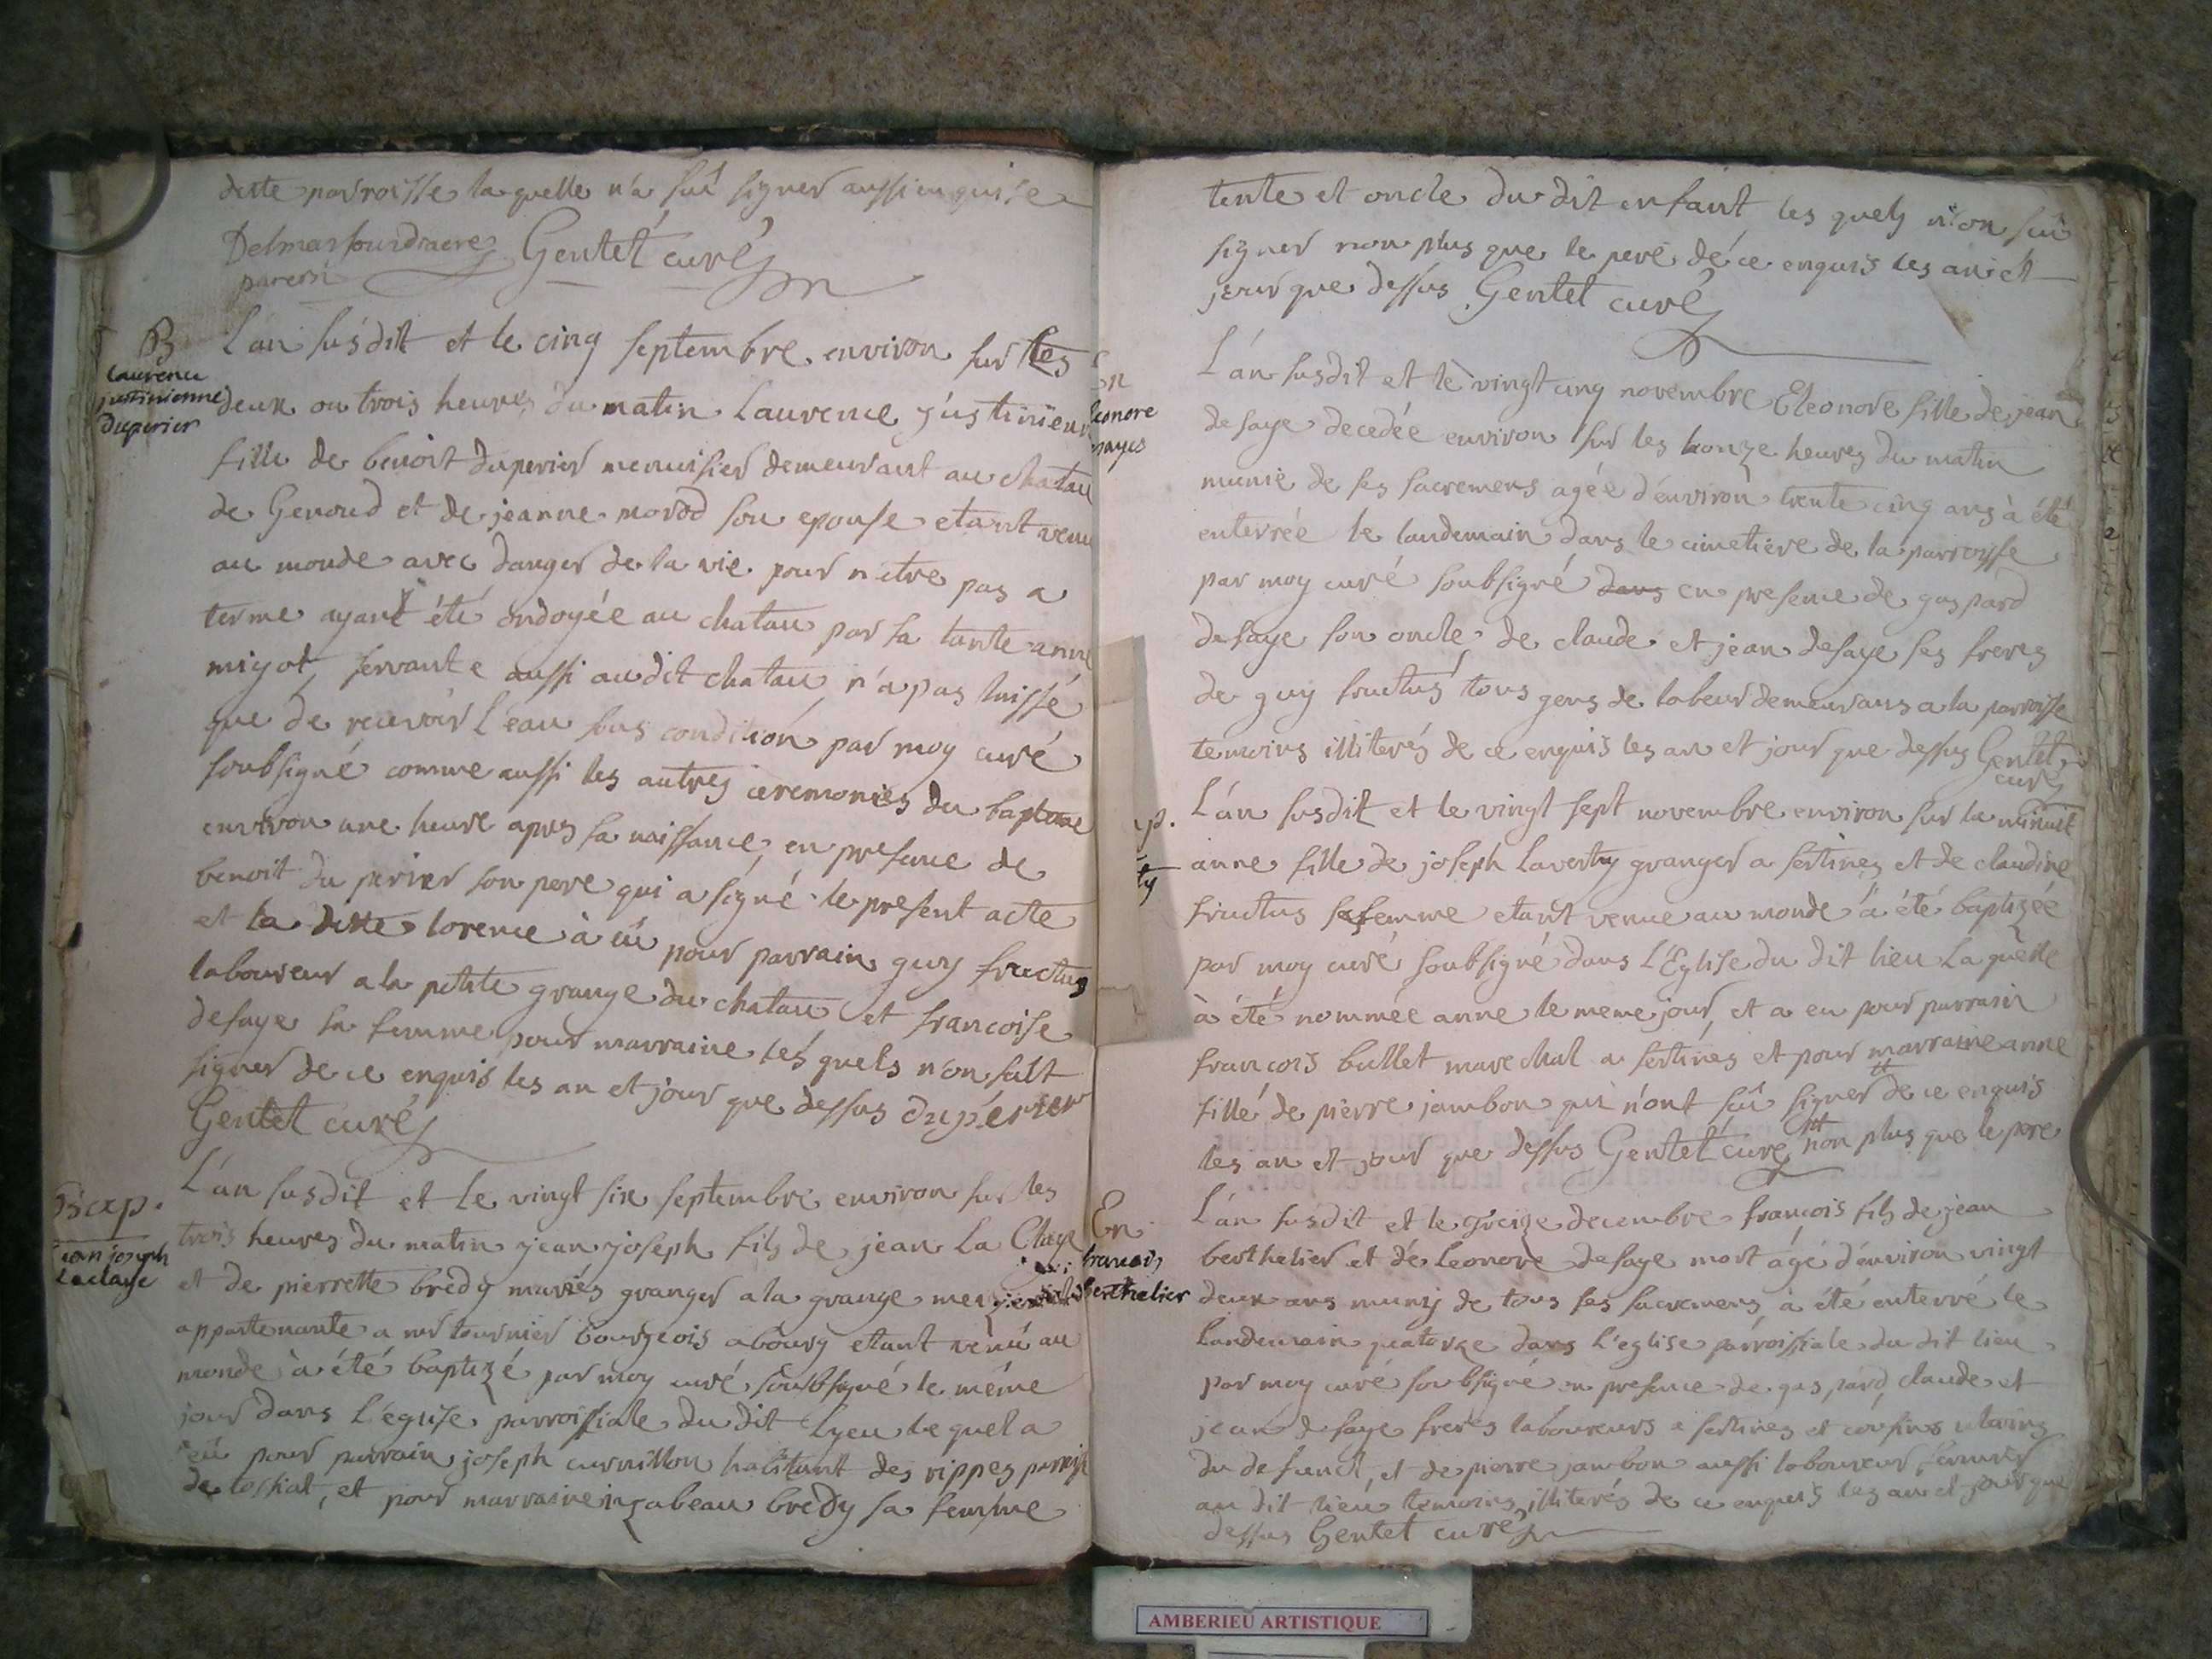 ditte parroisse la quelle n'a sçû signer aussi enquise
Delmarsourdiacre Gentet curé
parein
B
laurence
justinienne
duperier
L'an susdit et le cinq septembre environ sur les
deux ou trois heures du matin Laurence justinienne
fille de benoit duperier menuisier demeurant au chatau
de Genoud et de jeanne morod son epouse etant venu
au monde avec danger de la vie pour n'etre pas a
terme ayant été ondoyée au chatau par sa tante anne
migot, servante aussi au dit chatau, n'a pas laissé
que de recevoir l'eau sous condition par moy curé
soubsigné comme aussi les autres ceremonies du bapteme
environ une heure apres sa naissance, en presence de
benoit du perier son pere qui a signé le present acte
et la ditte lorence à eû pour parrain guy fructus
laboureur a la petite grange du chatau et francoise
desaye sa femme pour marraine les quels n'on sçut
signer de ce enquis les an et jour que dessus duperier
Gentet curé
Bap.
jean joseph
Laclaye
L'an susdit et le vingt six septembre environ sur les
trois heures du matin jean joseph fils de jean La Claye
et de pierrette bredy mariés granger a la grange
appartenante a mr tournier bourgeois a bourg etant venu au
monde à été baptizé par moy curé soubsigné le même
jour dans l'eglise parroissiale du dit Lyeu le quel a
eû pour parrain joseph curnillon habitant des rippes parroisse
de tossiat, et pour marraine izabeau bredy sa femme
tente et oncle du dit enfant les quels n'on sçû
signer non plus que le peré dé ce enquis les an et
jour que dessus Gentet curé
En
leonore
desayes
L'an susdit et lè vingt cinq novembre Eleonore fille de jean
desaye decedée environ sur les honze heures du matin
munie de ses sacremens agée d'environ trente cinq ans à été
enterrée le landemain dans le cimetiere de la parroisse
par moy curé soubsigné dans en presence de gaspard
desaye son oncle, de claude et jean desaye ses freres
de guy fructus tous gens de labeur demeurans a la parroisse
temoins illiterés de ce enquis les an et jour que dessus Gentet
curé
ap.
ty
L'an susdit et le vingt sept novembre environ sur la minuit
anne fille de joseph Laverty granger a sertines et de claudine
fructus sa femme etant venue au monde à été baptizée
par moy curé soubsigné dans l'Eglise du dit lieu la quelle
à été nommée anne le meme jour, et a eu pour parrain
francois bullet marechal a sertines et pour marraine anne
fille de pierre jambon qui n'ont sçû signer de ce enquis
les an et jour que dessus Gentet curé non plus que le pere
En
francois
berthelier
L'an susdit et le treize decembre françois fils de jean
berthelier et de Leonore desaye mort agé d'environ vingt
deux ans muny de tous ses sacremens à été enterré le
landemain quatorze dans l'eglise parroissiale du dit lieu
par moy curé soubsigné en presence de gaspard, claude et
jean desaye freres laboureurs a sertines et cousins
du defunct, et de pierre jambon aussi laboureur
au dit lieu temoins illiterés de ce enquis les an et jour que
dessus Gentet curé
AMBERIEU ARTISTIQUE